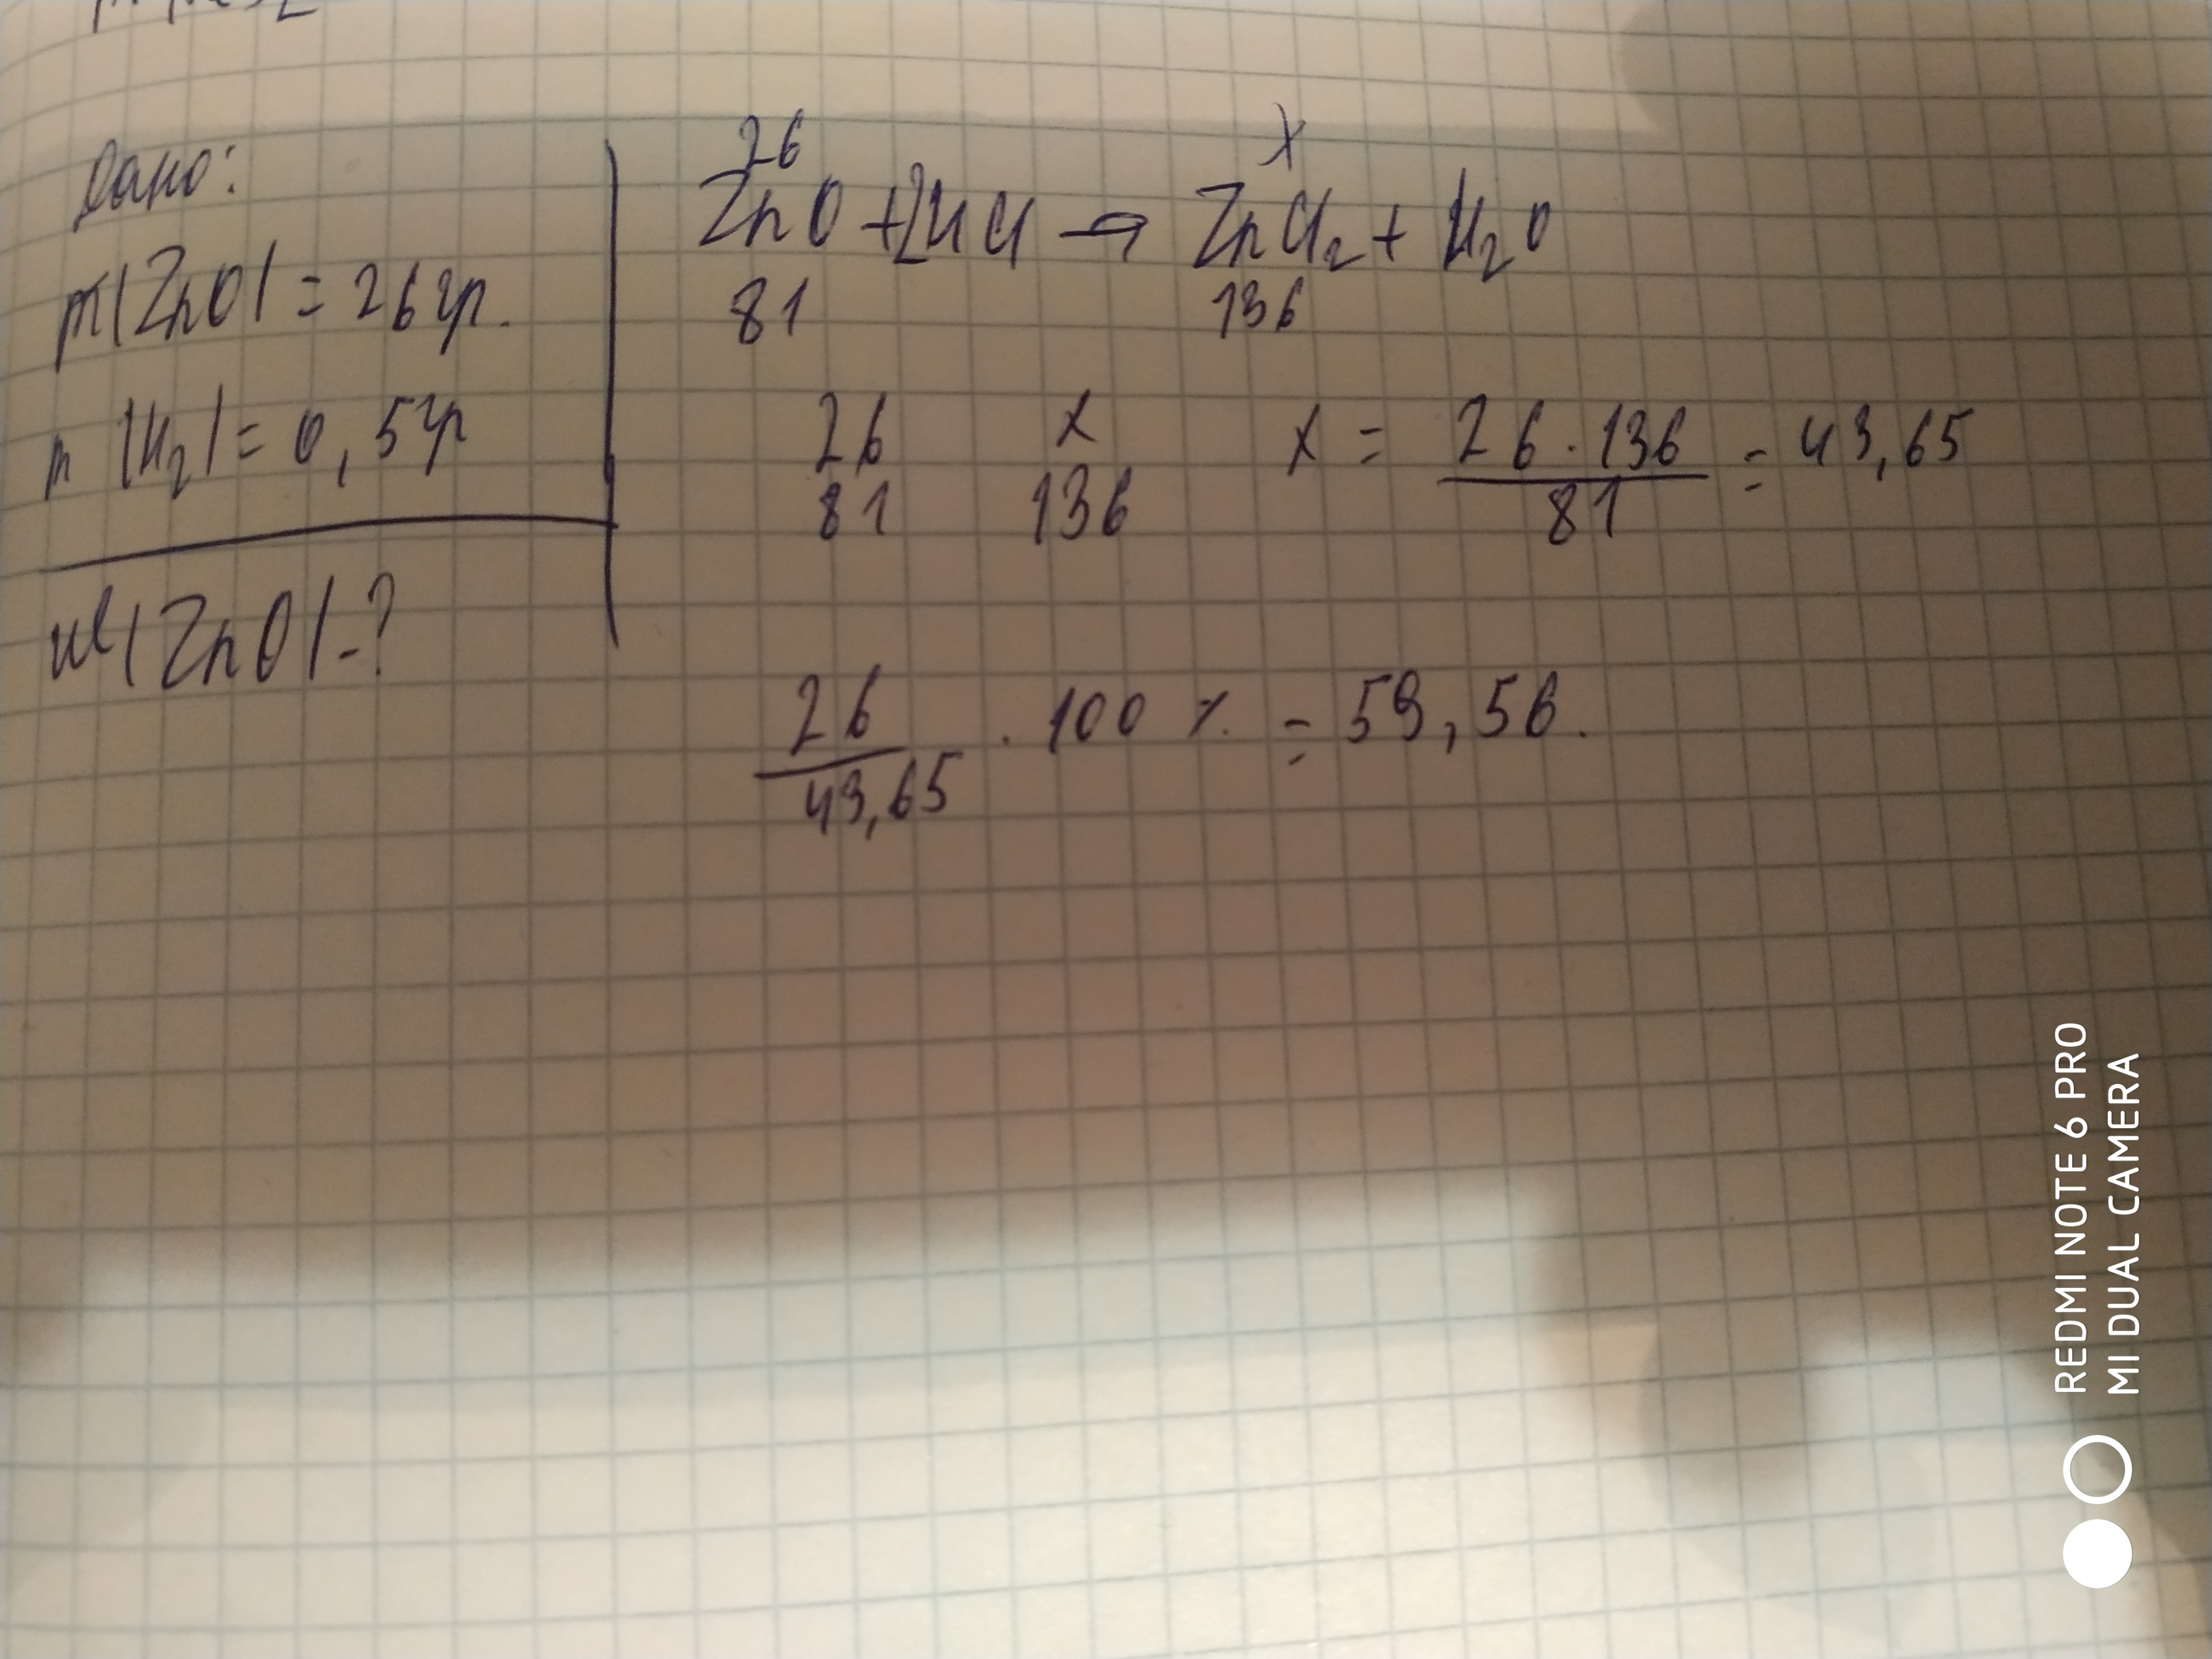 Дано:
m(ZnO) = 26 гр.
m (H₂) = 0,5 гр
w(ZnO) - ?
26 x
ZnO + 2HCl → ZnCl₂ + H₂O
81 136
26 x x = 26 · 136 / 81 = 43,65
81 136
26 / 43,65 · 100 % = 59,56.
REDMI NOTE 6 PRO
MI DUAL CAMERA